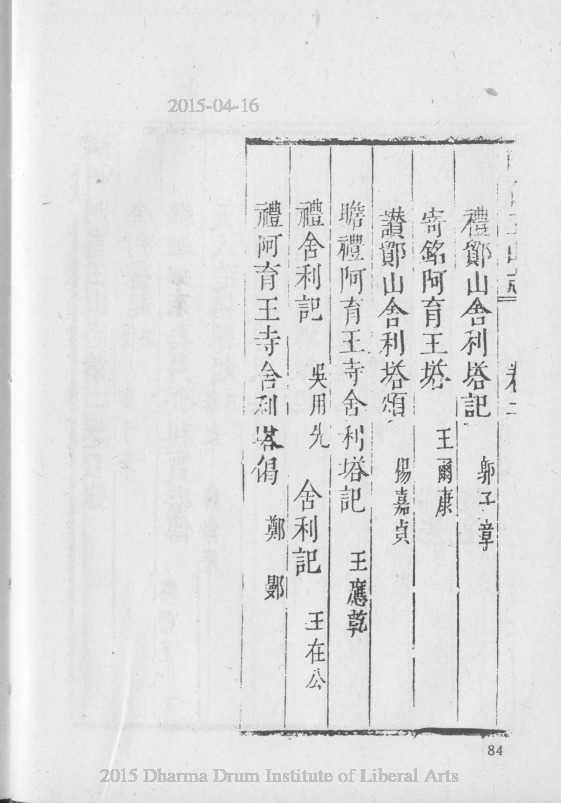 2015-04-16
禮鄮山舍利塔記　郭子章
寄銘阿育王塔　王爾康
讚鄮山舍利塔頌　楊嘉貞
瞻禮阿育王寺舍利塔記　王應乾
禮舍利記　吳用先　舍利記　王在公
禮阿育王寺舍利塔偈　鄭鄤
84
2015 Dharma Drum Institute of Liberal Arts